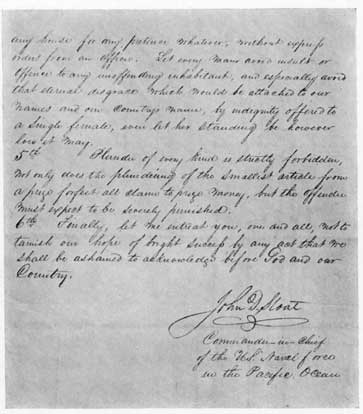 any house for any pretence whatever, without express
orders from an officer. Let every man avoid insult or
offence to any unoffending inhabitant, and especially avoid
that eternal disgrace which would be attached to our
names and our Country's name, by indignity offered to
a single female, even let her standing be however
low it may.
5th Plunder of every kind is strictly forbidden,
not only does the plundering of the smallest article from
a prize forfeit all claim to prize money, but the offender
must expect to be severely punished.
6th Finally, let me entreat you, one and all, not to
tarnish our hope of bright success by any act that we
shall be ashamed to acknowledge before God and our
Country.
John D. Sloat
Commander-in-Chief
of the U.S. Naval force
in the Pacific Ocean